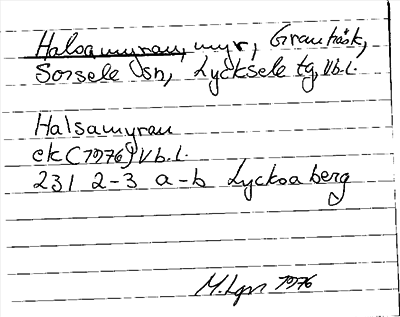 Halsamyran, myr, Granträsk,
Sorsele sn, Lycksele tg, Vb.l.
Halsamyran
ek (1976) Vb.l.
231 2-3 a-b Lycksaberg
M. Lgn 1976